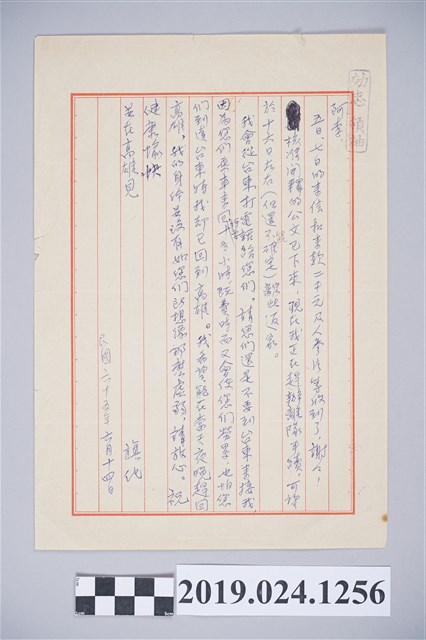 阿季
五日、七日的來信和來款二千元及人參片等收到了謝々!
核准開釋的公文已下來，現在我正在趕辦離隊手續，可望
於十六日左右（但還不確定）就此返家。
我會從台東打電話給您們。請您們還是不要到台東來接我，
因為您們乘車來回十多小時，旣費時而又會使您們勞累，也怕您
們到達台東時我却已回到高雄。我希望能在當天夜晚趕回
高雄。我的身体並沒有如您們所想像那麼虛弱，請放心。祝
健康愉快
並在高雄見
民國六十五年六月十四日
2019.024.1256